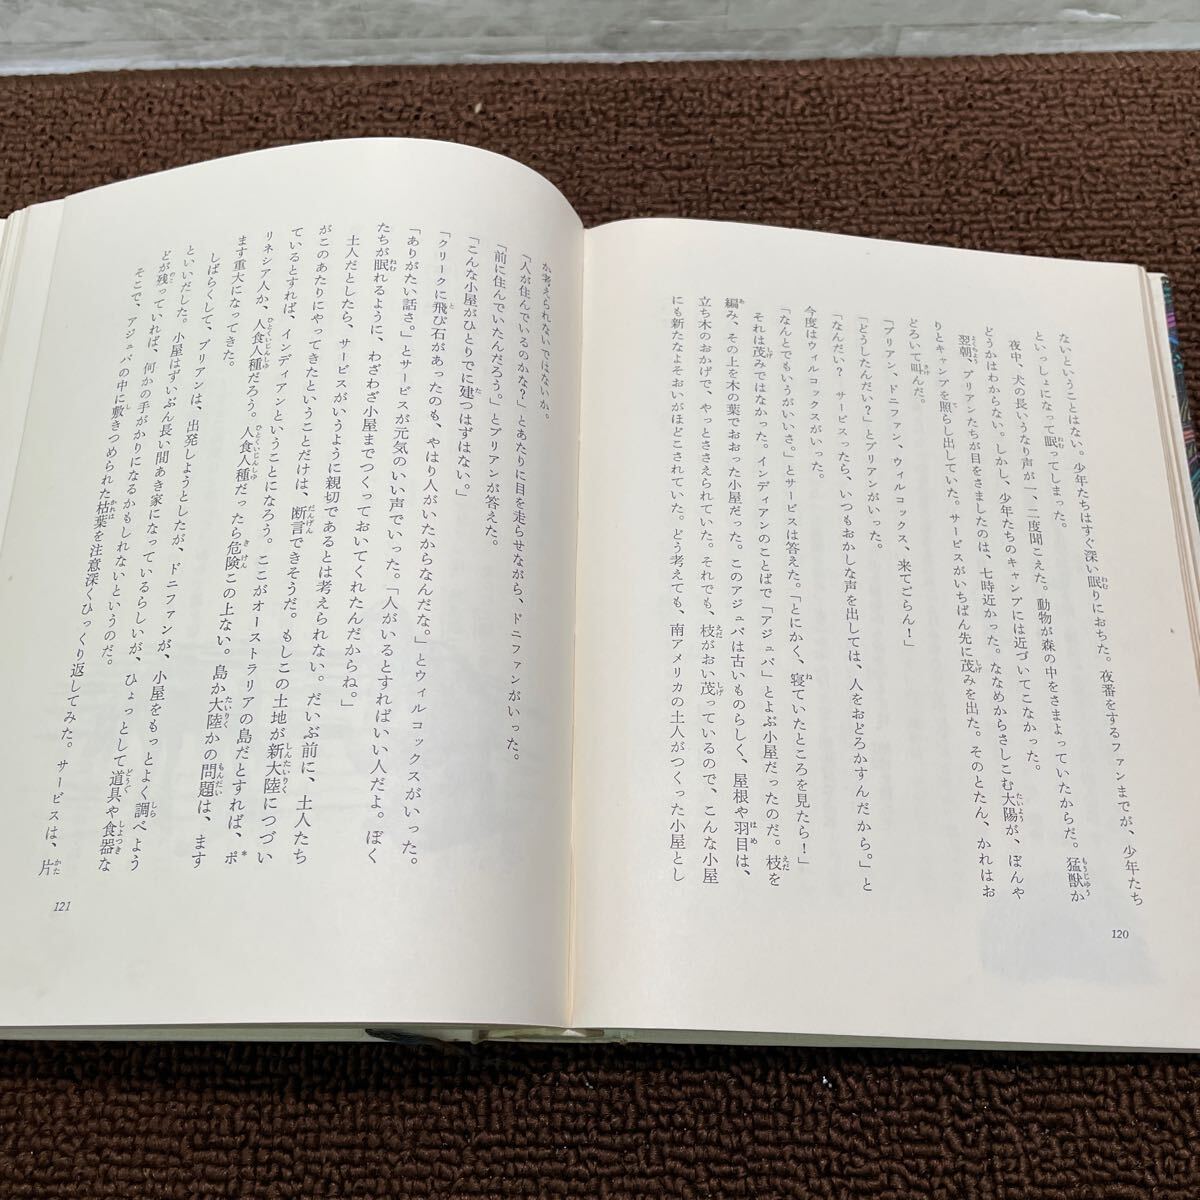 ないということはない。少年たちはすぐ深い眠りにおちた。夜番をするファンまでが、少年たち
といっしょになって眠ってしまった。
夜中、犬の長いうなり声が一、二度聞こえた。動物が森の中をさまよっていたからだ。猛獣か
どうかはわからない。しかし、少年たちのキャンプには近づいてこなかった。
翌朝、ブリアンたちが目をさましたのは、七時近かった。ななめからさしこむ太陽が、ぼんや
りとキャンプを照らし出していた。サービスがいちばん先に茂みを出た。そのとたん、かれはお
どろいて叫んだ。
「ブリアン、ドニファン、ウィルコックス、来てごらん！」
「どうしたんだい？」とブリアンがいった。
「なんだい？　サービスったら、いつもおかしな声を出しては、人をおどろかすんだから。」と
今度はウィルコックスがいった。
「なんとでもいうがいいさ。」とサービスは答えた。「とにかく、寝ていたところを見たら！」
それは茂みではなかった。インディアンのことばで「アジュパ」とよぶ小屋だったのだ。枝を
編み、その上を木の葉でおおった小屋だった。このアジュパは古いものらしく、屋根や羽目は、
立ち木のおかげで、やっとささえられていた。それでも、枝がおい茂っているので、こんな小屋
にも新たなよそおいがほどこされていた。どう考えても、南アメリカの土人がつくった小屋とし
120
か考えられないではないか。
「人が住んでいるのかな？」とあたりに目を走らせながら、ドニファンがいった。
「前に住んでいたんだろう。」とブリアンが答えた。
「こんな小屋がひとりでに建つはずはない。」
「クリークに飛び石があったのも、やはり人がいたからなんだな。」とウィルコックスがいった。
「ありがたい話さ。」とサービスが元気のいい声でいった。「人がいるとすればいい人だよ。ぼく
たちが眠れるように、わざわざ小屋までつくっておいてくれたんだからね。」
土人だとしたら、サービスがいうように親切であるとは考えられない。だいぶ前に、土人たち
がこのあたりにやってきたということだけは、断言できそうだ。もしこの土地が新大陸につづい
ているとすれば、インディアンということになろう。ここがオーストラリアの島だとすれば、ポ*
リネシア人か、人食人種だろう。人食人種だったら危険この上ない。島か大陸かの問題は、ます
ます重大になってきた。
しばらくして、ブリアンは、出発しようとしたが、ドニファンが、小屋をもっとよく調べよう
といいだした。小屋はずいぶん長い間あき家になっているらしいが、ひょっとして道具や食器な
どが残っていれば、何かの手がかりになるかもしれないというのだ。
そこで、アジュパの中に敷きつめられた枯葉を注意深くひっくり返してみた。サービスは、片
121